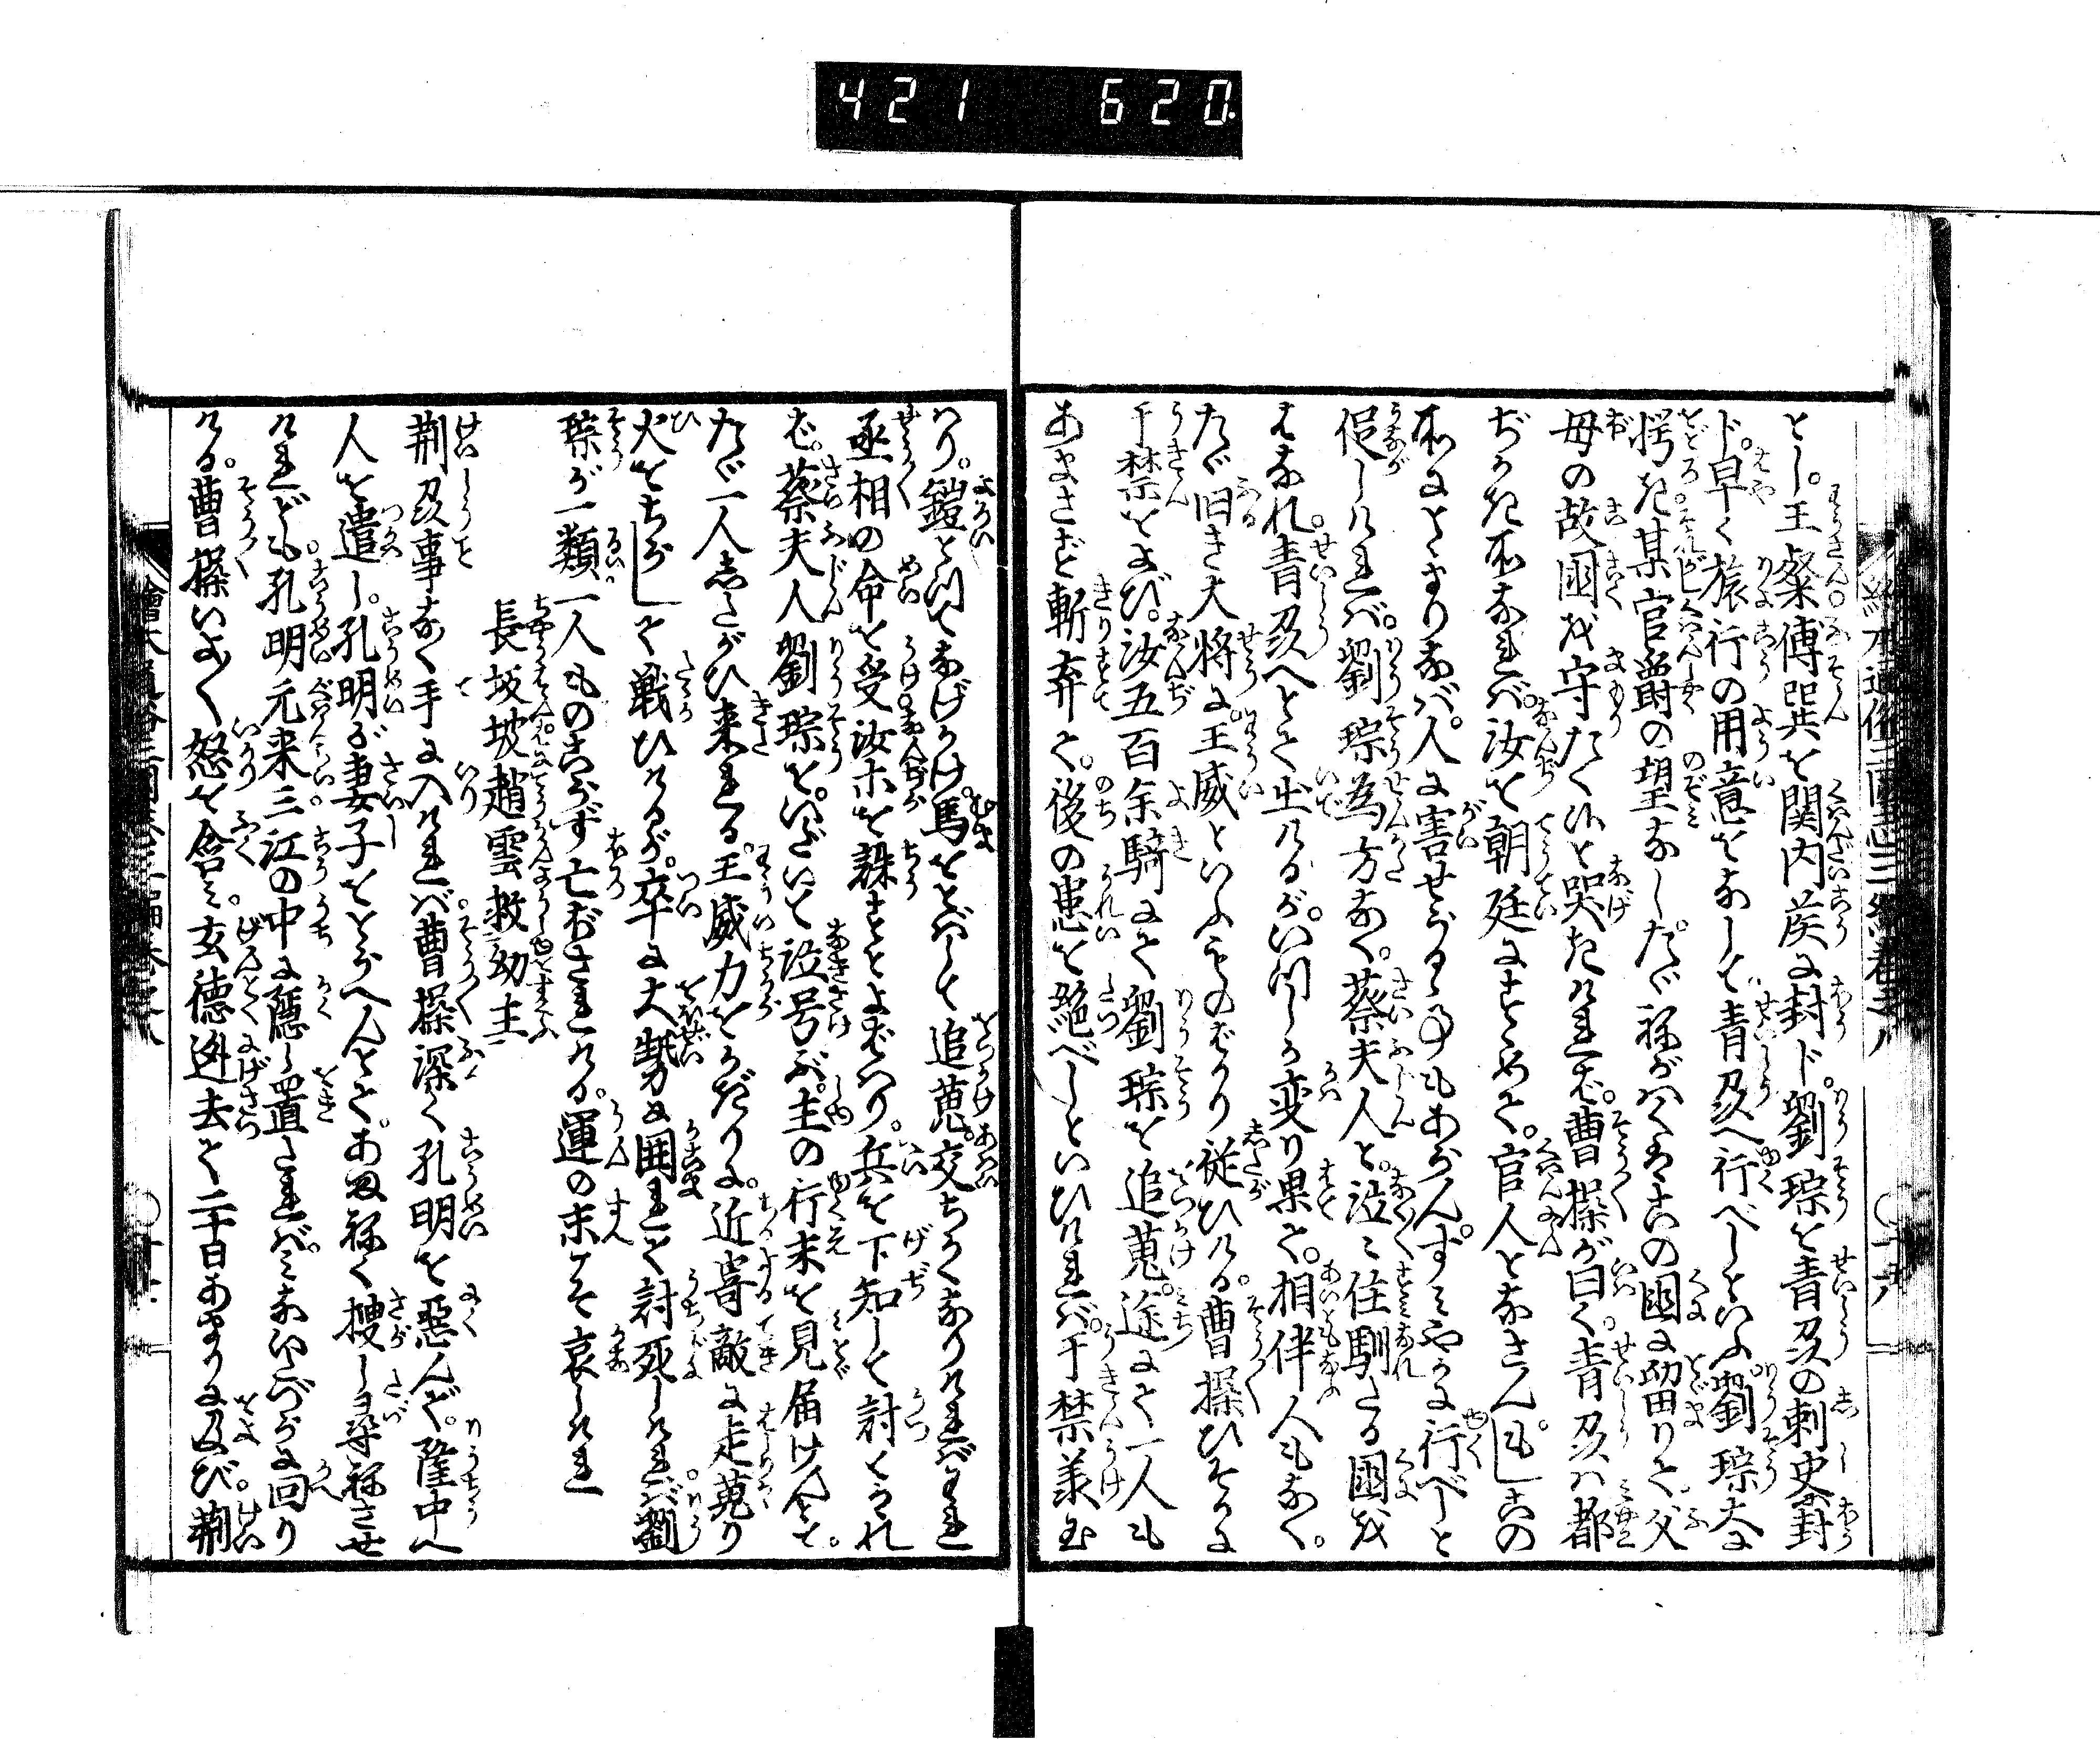 421 620
とし。王粲傅巽を関内侯に封ド。劉琮を青州の刺史封
ド。早く旅行の用意をなして。青州へ行べしといふ。劉琮大に
愕き。某官爵の望なし。たゞ祢がハくハこの国に留りて。父
母の故国を守たく候と哭きけれバ。曹操が曰く。青州ハ都
ぢかき所なれバ。汝を朝廷にすゝめて。官人となさん。もしこの
所にとゞまりなバ。人に害せらるゝ事もあらんずミやかに行べしと
促しけれバ。劉琮為方なく。蔡夫人と。泣々住馴たる国を
はなれ。青州へとて出けるが。いつしか変り果て。相伴人もなく。
たゞ旧き大将に。王威といふものばかり従ひける。曹操ひそかに
于禁をよび。汝五百余騎にて劉琮を追蒐。途にて一人も
あまさず斬弃て。後の患を絶べしといひけれバ。于禁羕り
けり。鎧とつてなげかけ。馬をとバして追蒐。交ちかくなりけれバわれ
丞相の命を受汝ホを誅すとよばハり。兵を下知して討とられ
ば。蔡夫人劉琮を。いだいて泣号ぶ。主の行末を見届けんとて。
たゞ一人志たがひ来れる。王威力をかぎりに。近寄敵に走蒐り
火をちらして戦ひけるが。卒に大勢に囲れて討死しけれバ。劉
琮が一類。一人ものこらず亡ぼされける。運の末こそ哀しけれ
長坂坡趙雲救幼主
荆州事なく手に入けれバ。曹操深く孔明を悪んで。隆中へ
人を遣し。孔明が妻子をとらへんとて。あまねく捜し尋祢させ
けれども。孔明元来三江の中に隱し置たれバ。ミないたづらに回り
ける。曹操いよ〳〵怒を含ミ。玄徳迯去て二十日あまりに及び。荆